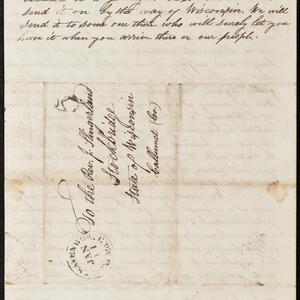 send it on by that way of Wisconsin. We will
send it to some one there who will surely let you
have it when you arrive there or our people.
To the Rev. J. Slingerland
Stockbridge
State of Wisconsin
Callumet Co.
JAN
11